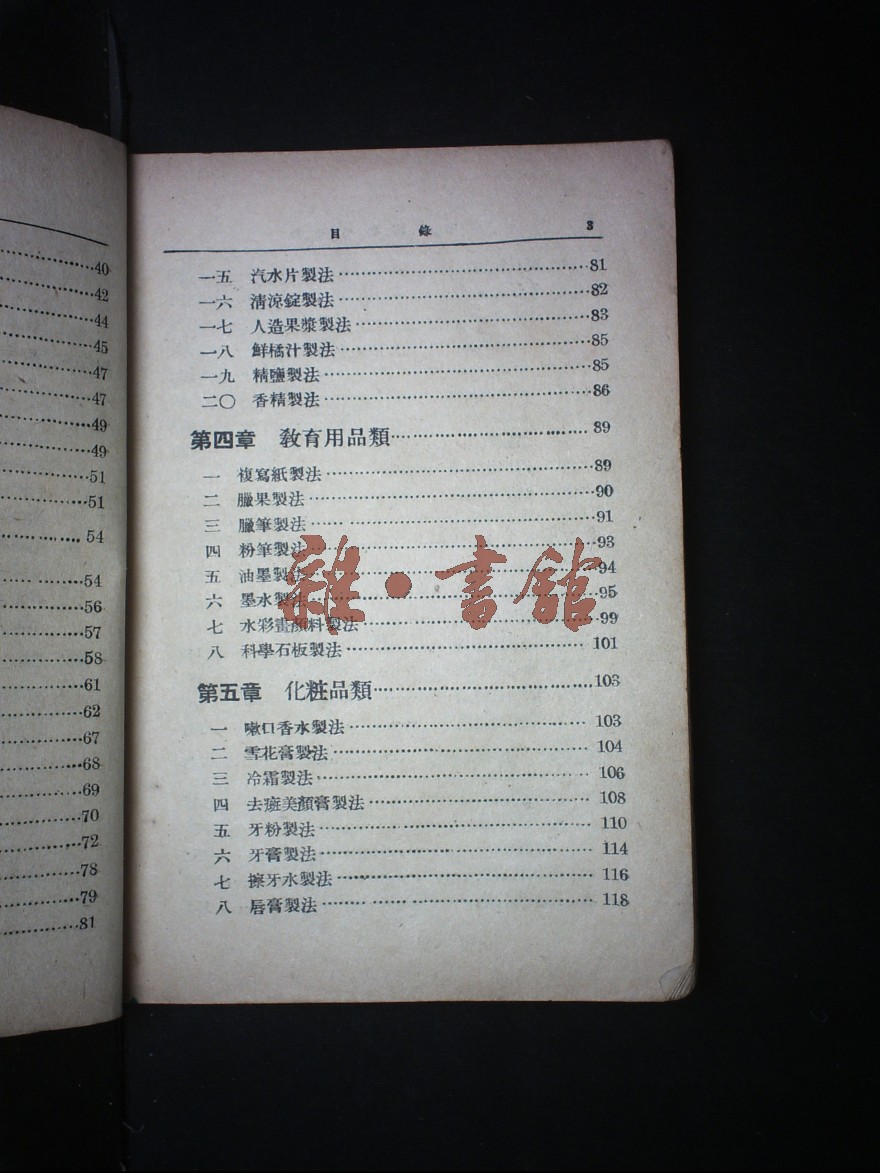 40
42
44
45
47
47
49
49
51
51
54
54
56
57
58
61
62
67
68
69
70
72
78
79
81
目錄 3
一五 汽水片製法 81
一六 清涼錠製法 82
一七 人造果漿製法 83
一八 鮮橘汁製法 85
一九 精鹽製法 85
二〇 香精製法 86
第四章 教育用品類 89
一 複寫紙製法 89
二 臘果製法 90
三 臘筆製法 91
四 粉筆製法 93
五 油墨製法 94
六 墨水製法 95
七 水彩畫顏料製法 99
八 科學石板製法 101
第五章 化粧品類 103
一 嗽口香水製法 103
二 雪花膏製法 104
三 冷霜製法 106
四 去斑美顏膏製法 108
五 牙粉製法 110
六 牙膏製法 114
七 擦牙水製法 116
八 唇膏製法 118
雜·書館